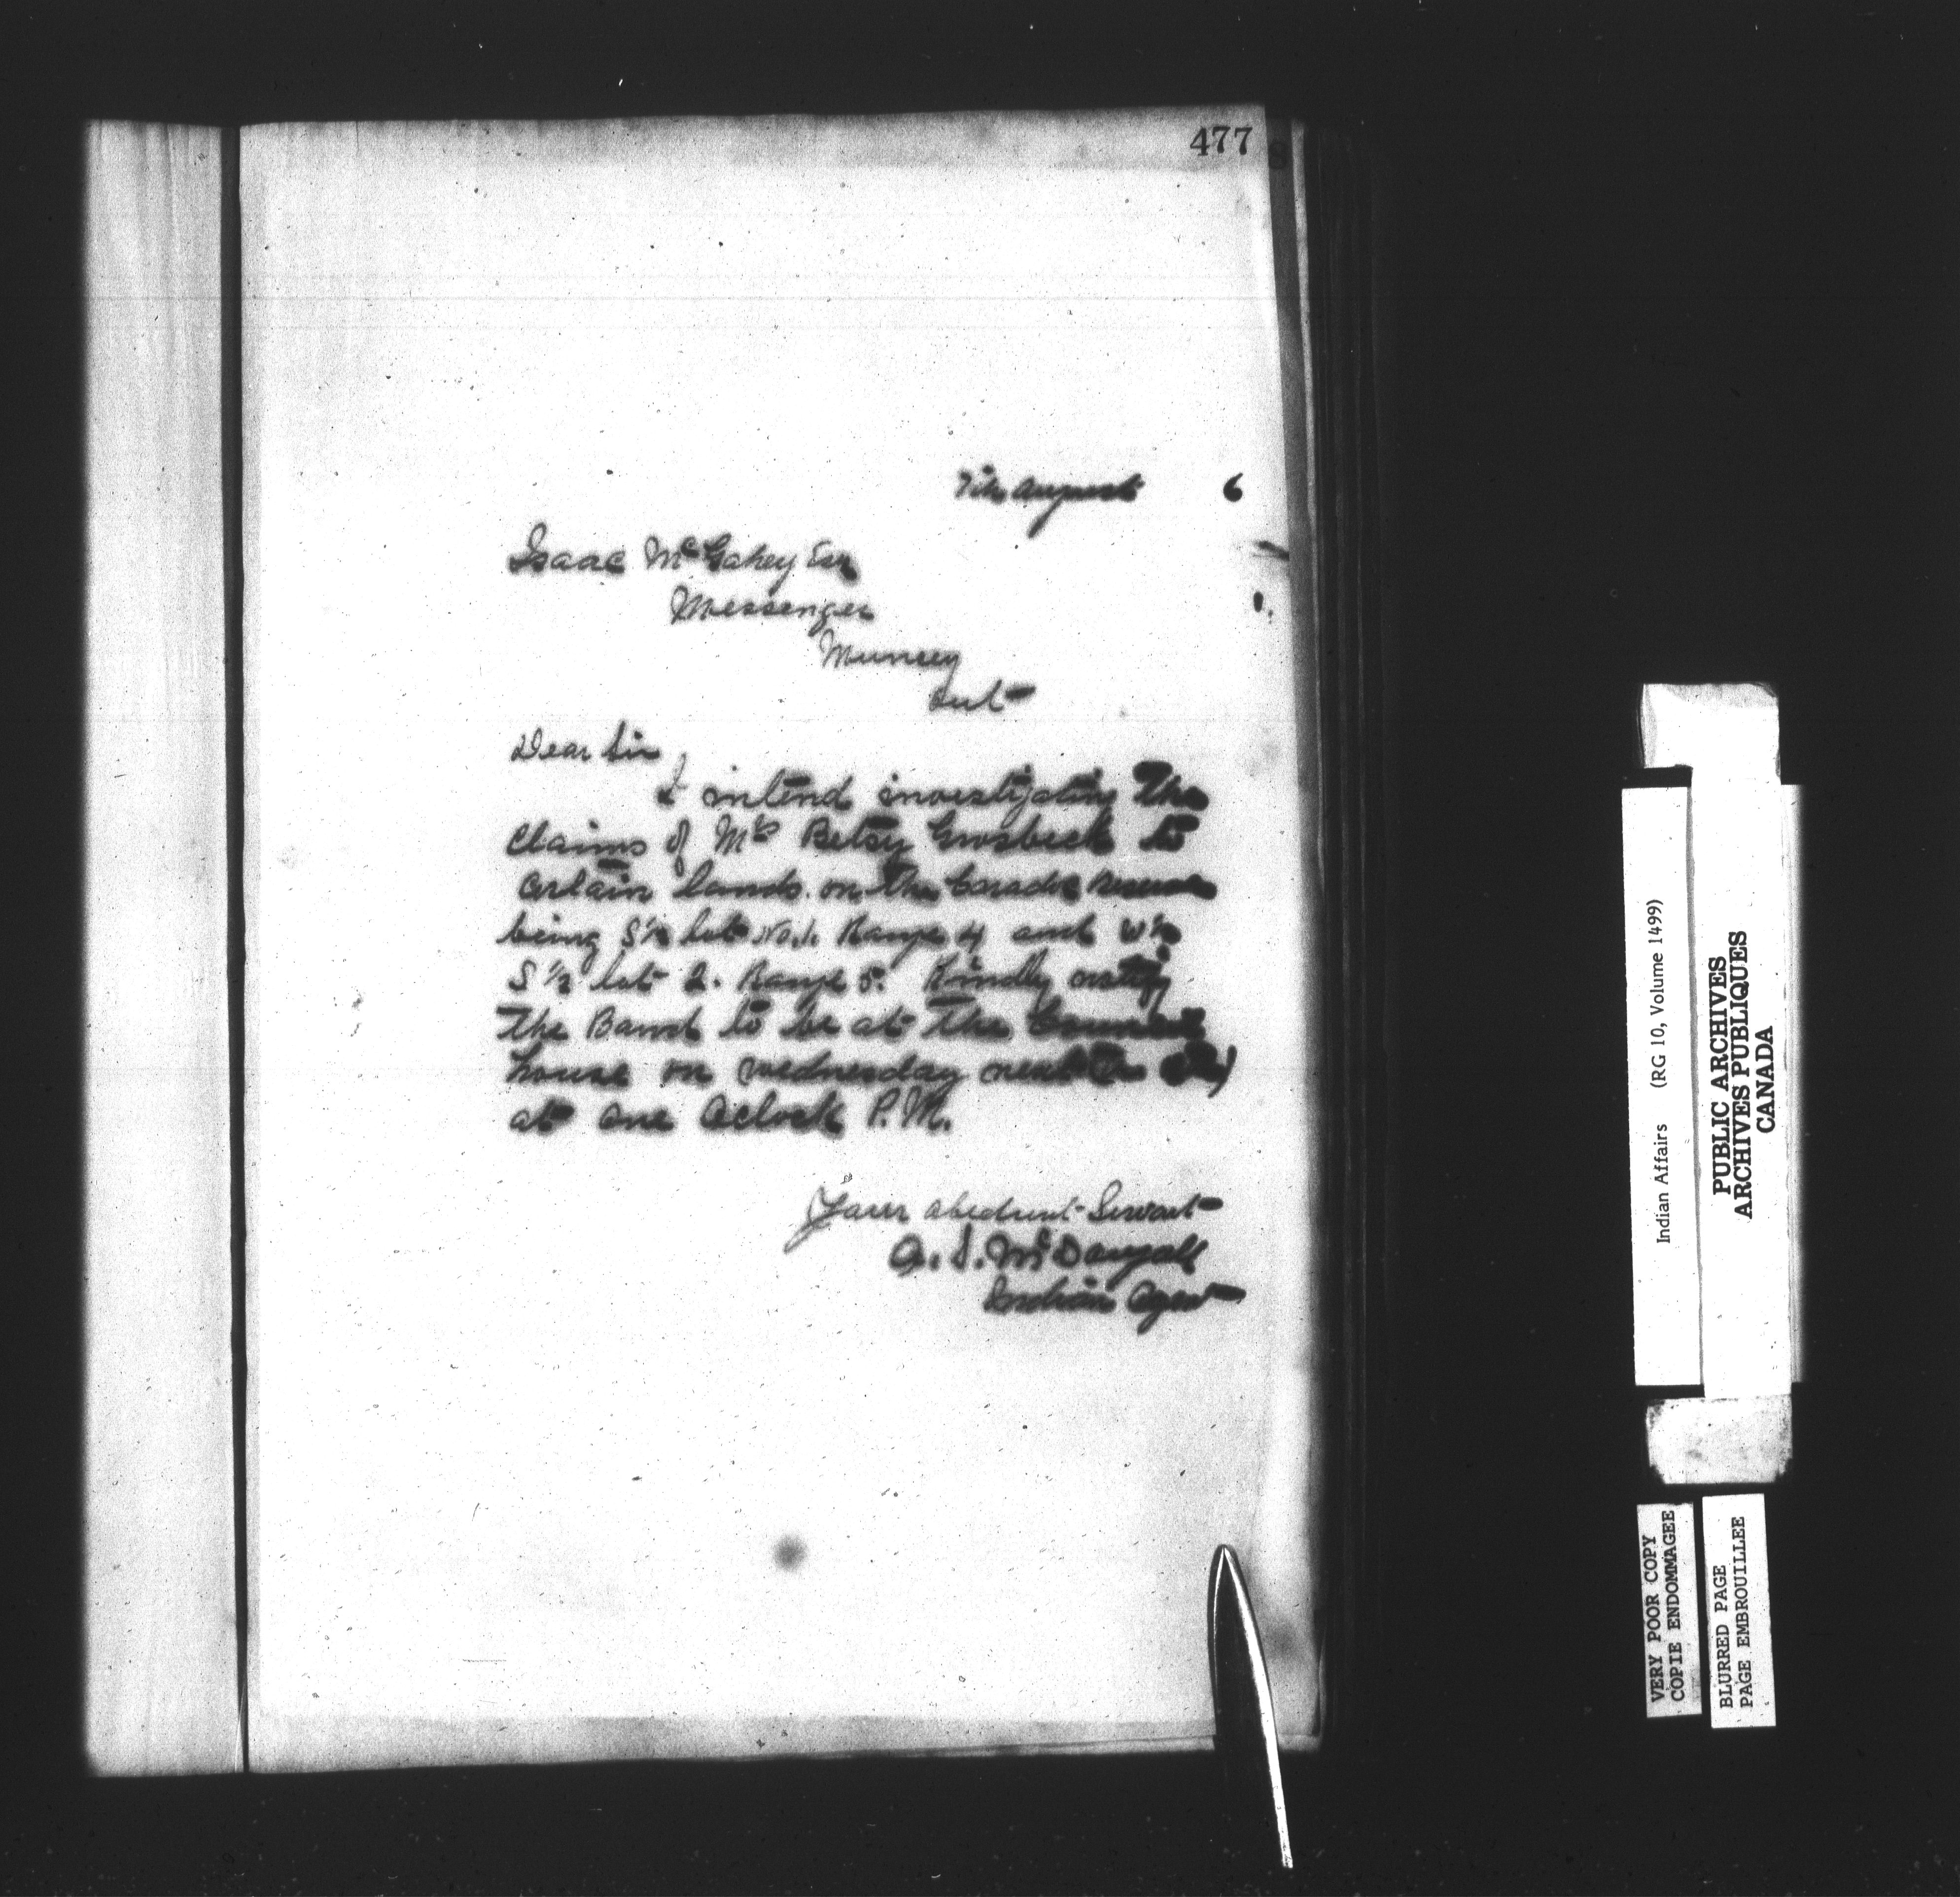 477
7th August 6
Isaac McGahey Esq
Messenger
Muncey
Ont
Dear Sir
I intend investigating The
Claims of Mrs Betsy Grosbeck to
certain lands on The Caradoc reserve
being S ½ lot No. 1. Range 4 and W ½
S ½ lot 2. Range 5. Kindly notify
The Band to be at The Council
house on wednesday next
at one Oclock P.M.
Your obedient Servant
A. S. McDougall
Indian Agent
Indian Affairs (RG 10, Volume 1499)
PUBLIC ARCHIVES
ARCHIVES PUBLIQUES
CANADA
VERY POOR COPY
COPIE ENDOMMAGEE
BLURRED PAGE
PAGE EMBROUILLEE